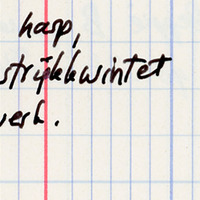 hasp,
strijkkwintet
werk.